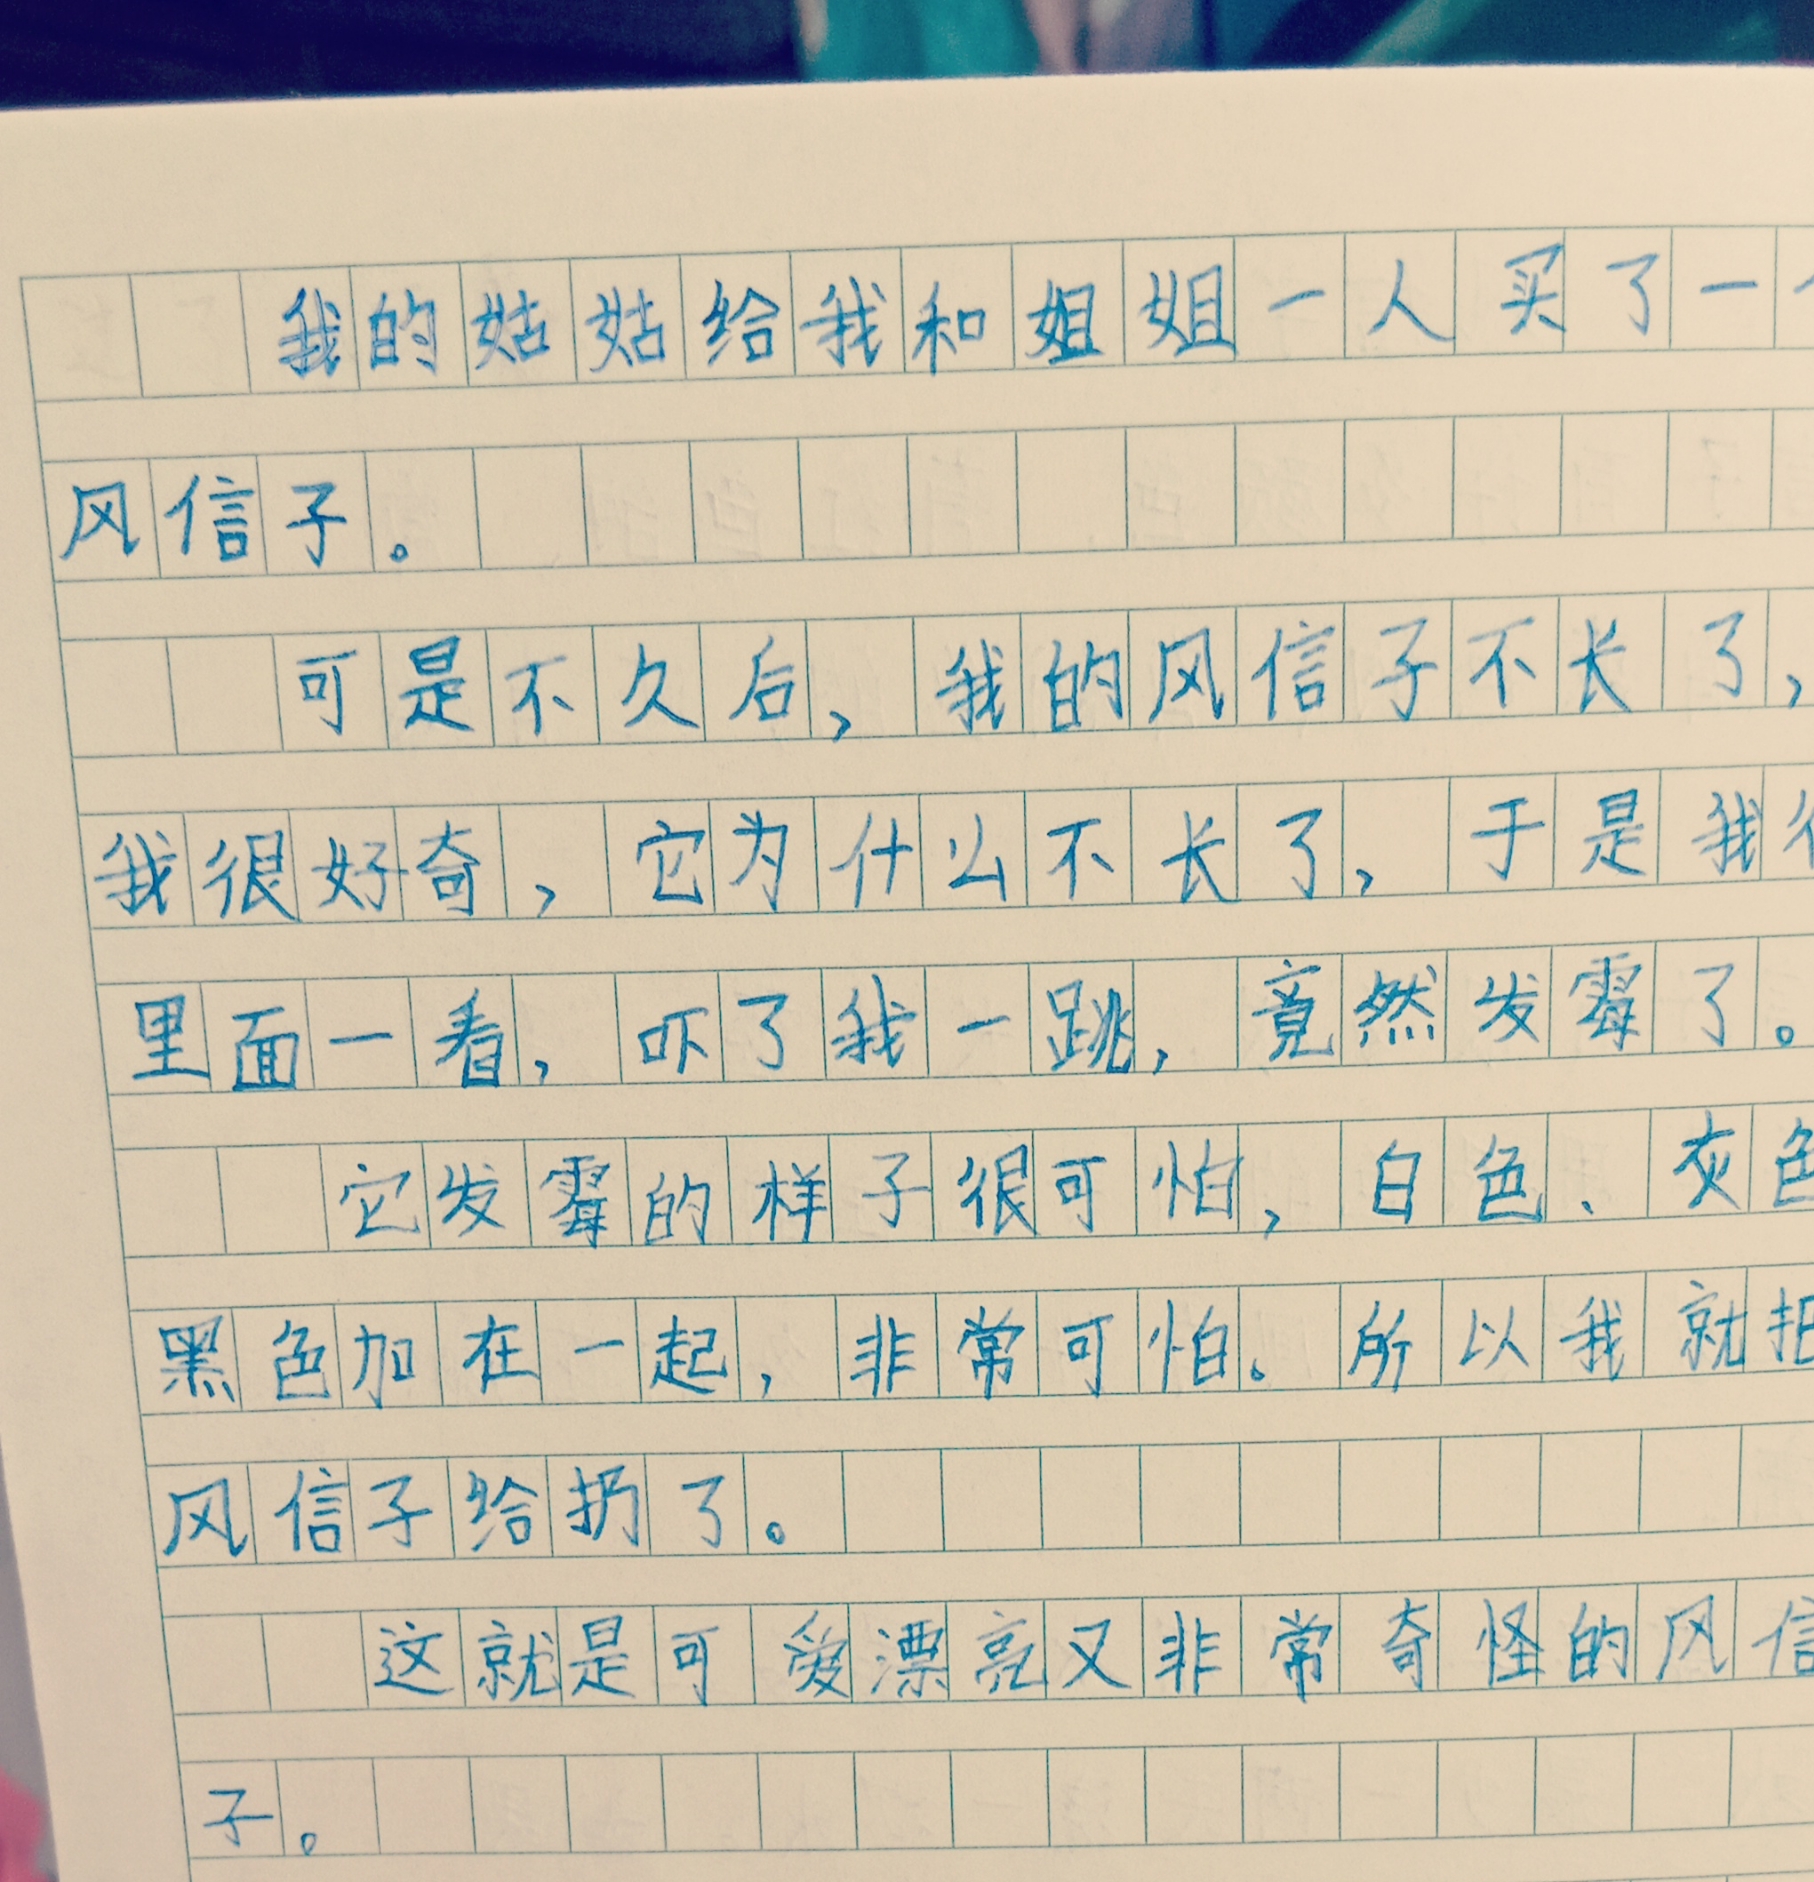 我的姑姑给我和姐姐一人买了一
风信子。
可是不久后，我的风信子不长了，
我很好奇，它为什么不长了，于是我
里面一看，吓了我一跳，竟然发霉了。
它发霉的样子很可怕，白色、灰色
黑色加在一起，非常可怕。所以我就把
风信子给扔了。
这就是可爱漂亮又非常奇怪的风信
子。